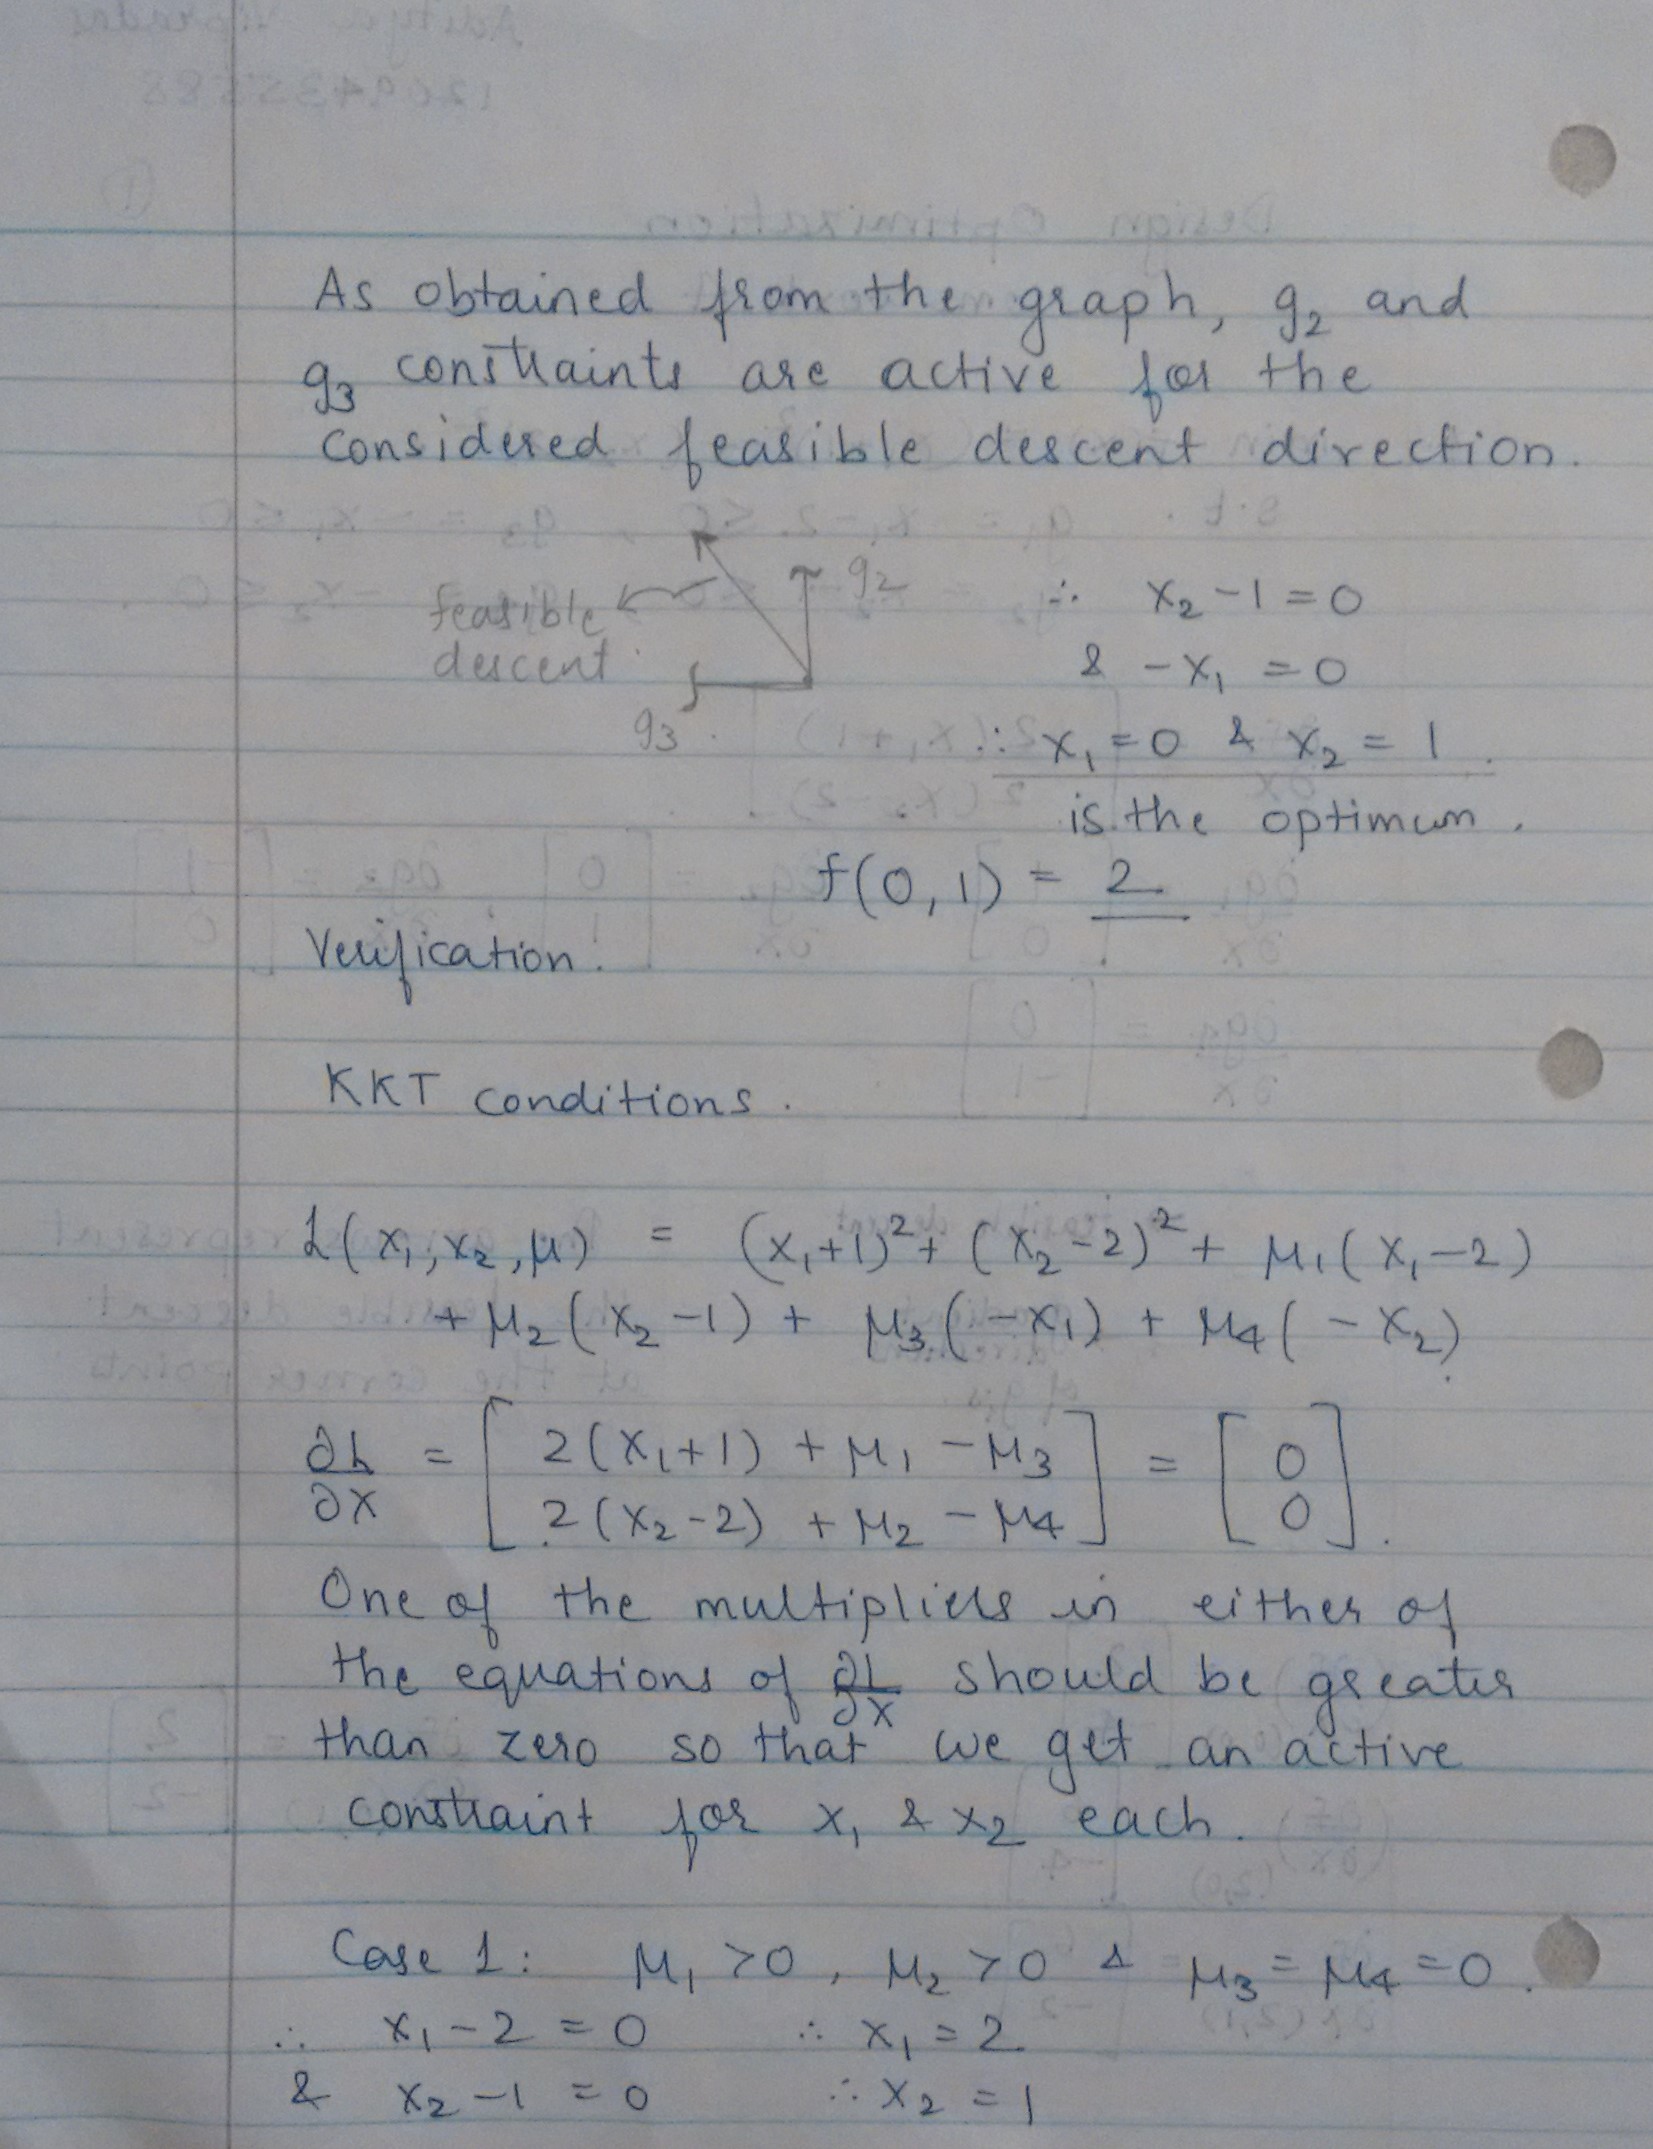 As obtained from the graph, g₂ and
g₃ constraints are active for the
considered feasible descent direction.
g₂ ∴ x₂ - 1 = 0
feasible
descent & -x₁ = 0
g₃ ∴ x₁ = 0 & x₂ = 1
is the optimum.
f(0, 1) = 2
Verification.
KKT conditions.
L(x₁, x₂, μ) = (x₁+1)² + (x₂-2)² + μ₁(x₁-2)
+ μ₂(x₂-1) + μ₃(-x₁) + μ₄(-x₂)
∂L/∂x = [2(x₁+1) + μ₁ - μ₃
2(x₂-2) + μ₂ - μ₄] = [0
0].
One of the multipliers in either of
the equations of ∂L/∂x should be greater
than zero so that we get an active
constraint for x₁ & x₂ each.
Case 1: μ₁ > 0, μ₂ > 0 & μ₃ = μ₄ = 0.
∴ x₁ - 2 = 0 ∴ x₁ = 2
& x₂ - 1 = 0 ∴ x₂ = 1